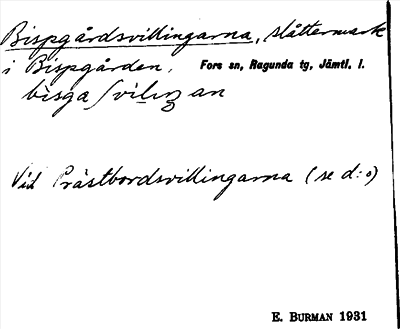 Bispgårdsvillingarna, slåttermark
i Bispgården, Fors sn, Ragunda tg, Jämtl. l.
bìsga
an
Vid Prästbordsvillingarna (se d:o)
E. BURMAN 1931